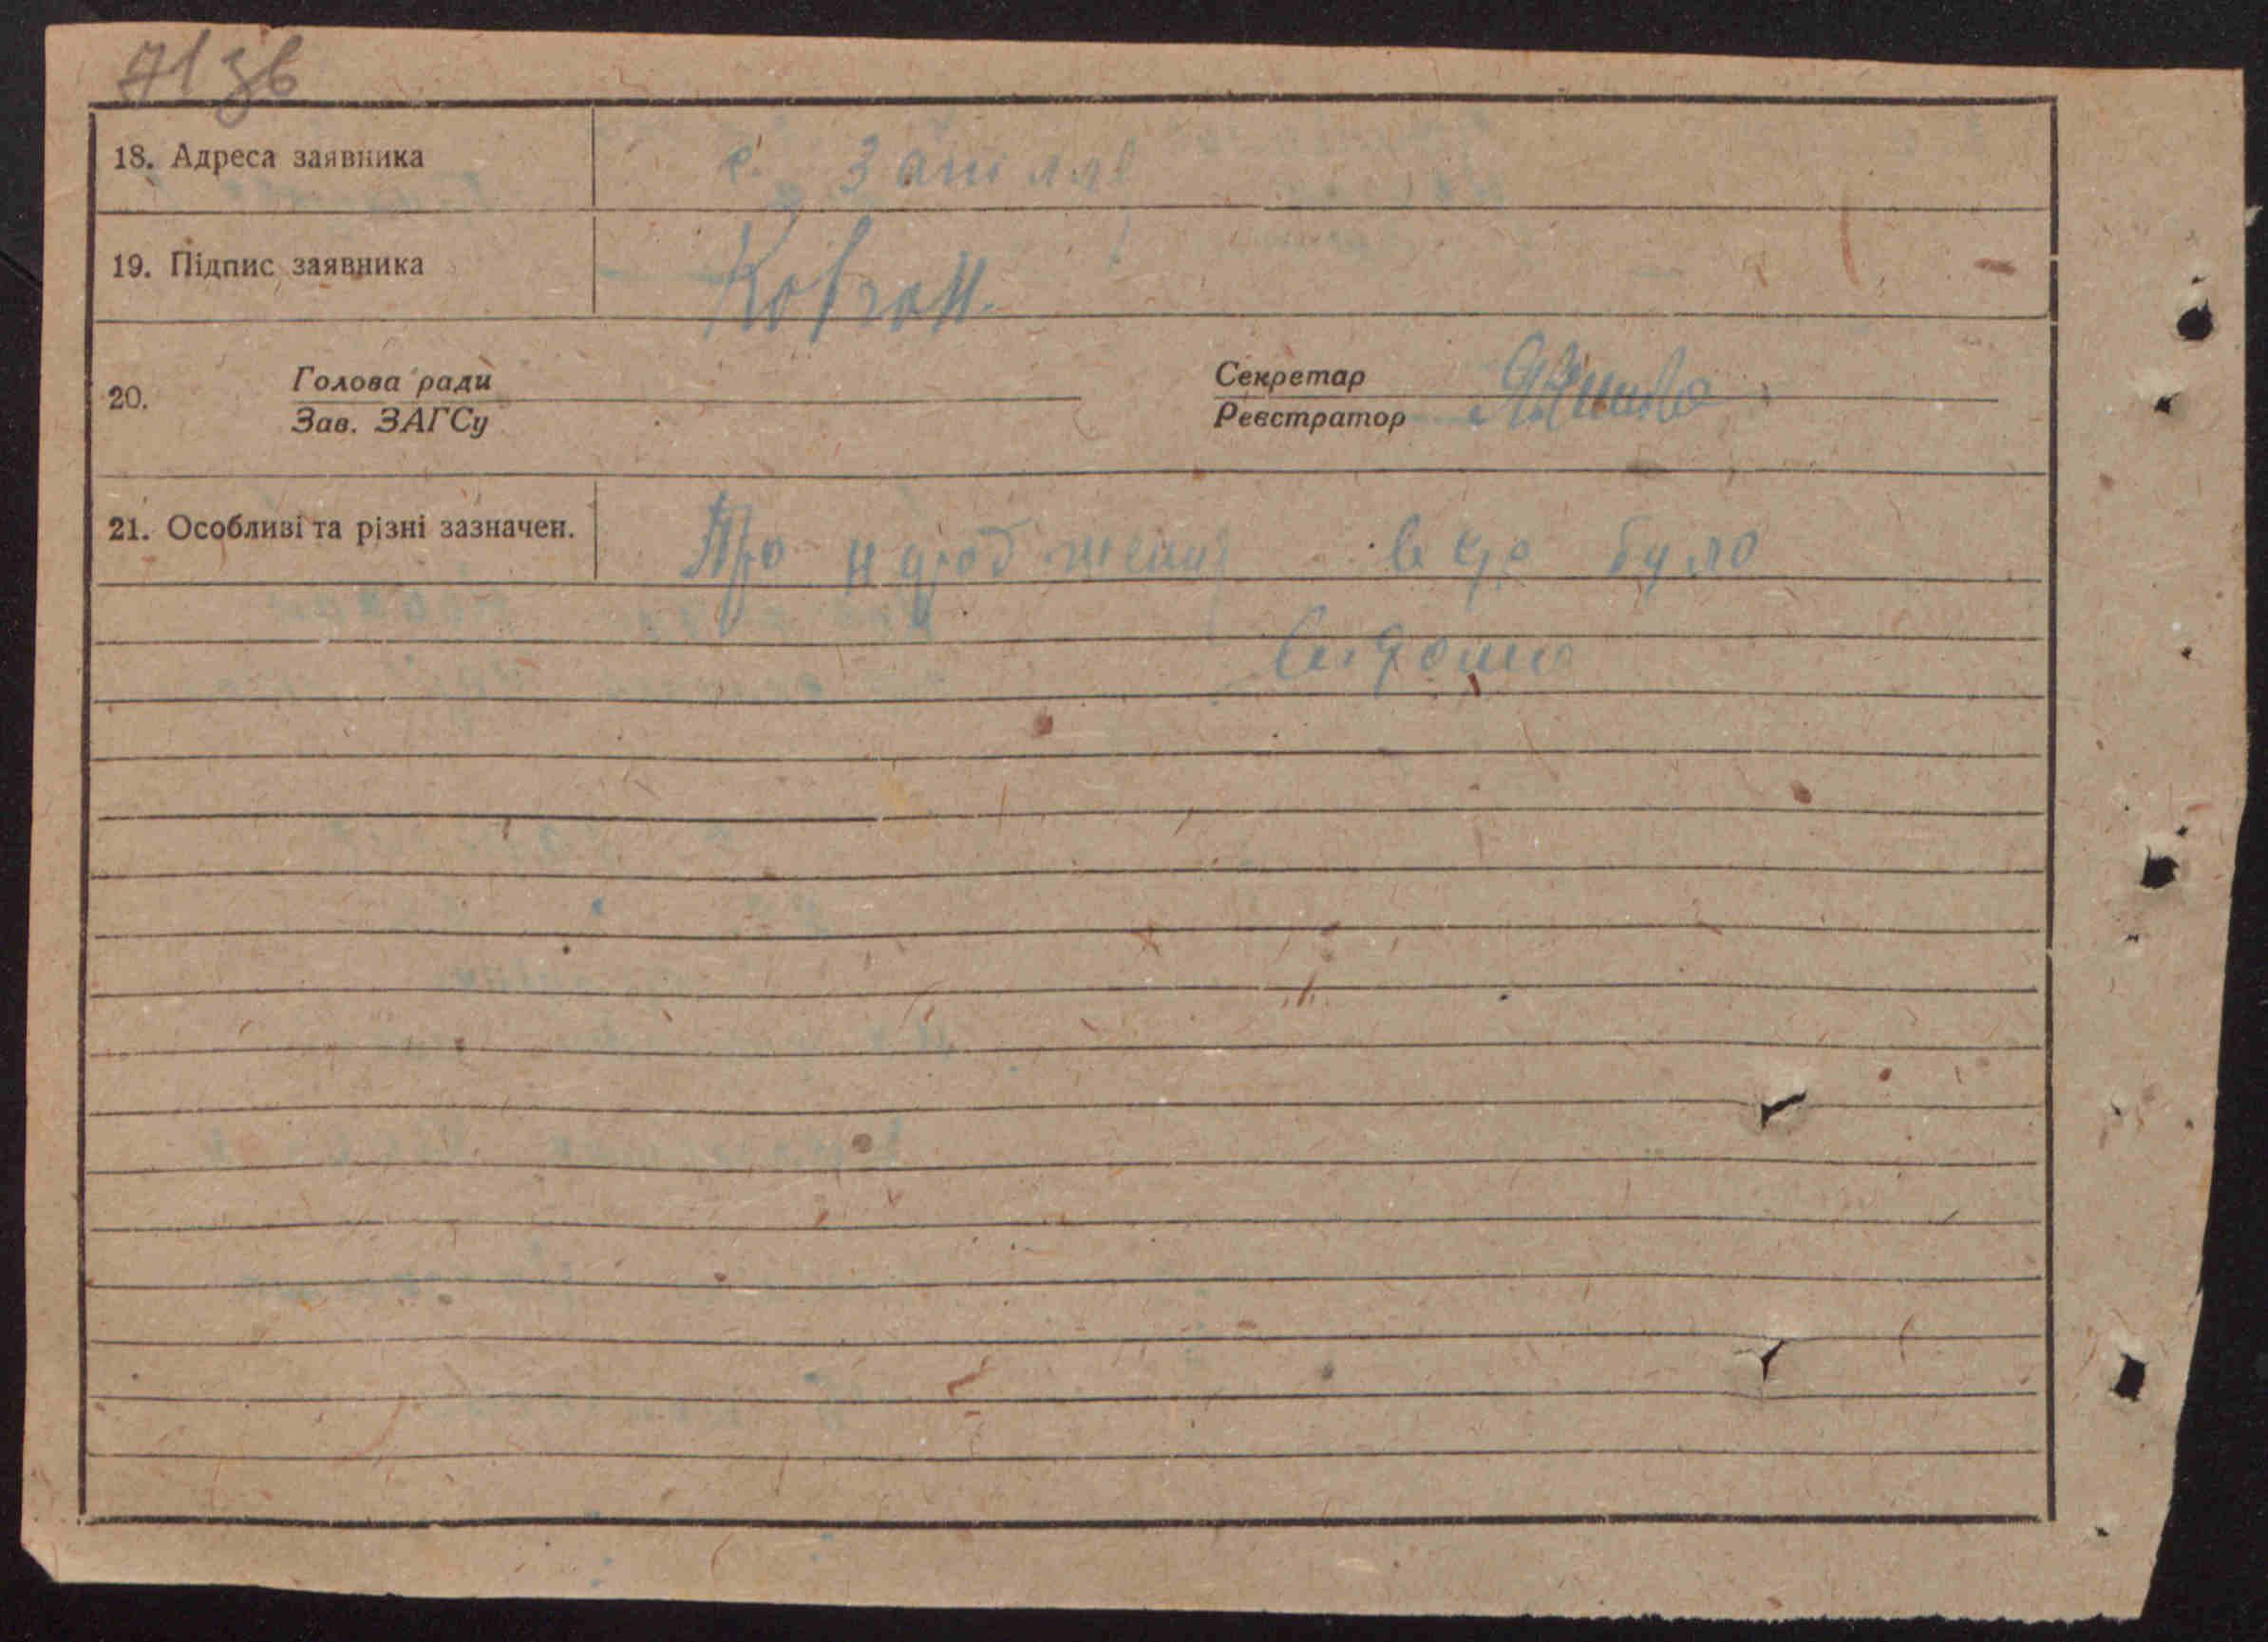 71 зв
18. Адреса заявника с. Запілля
19. Підпис заявника Ковгон.
20. Голова ради Секретар
Зав. ЗАГСу Реєстратор
21. Особливі та різні зазначен. Про було